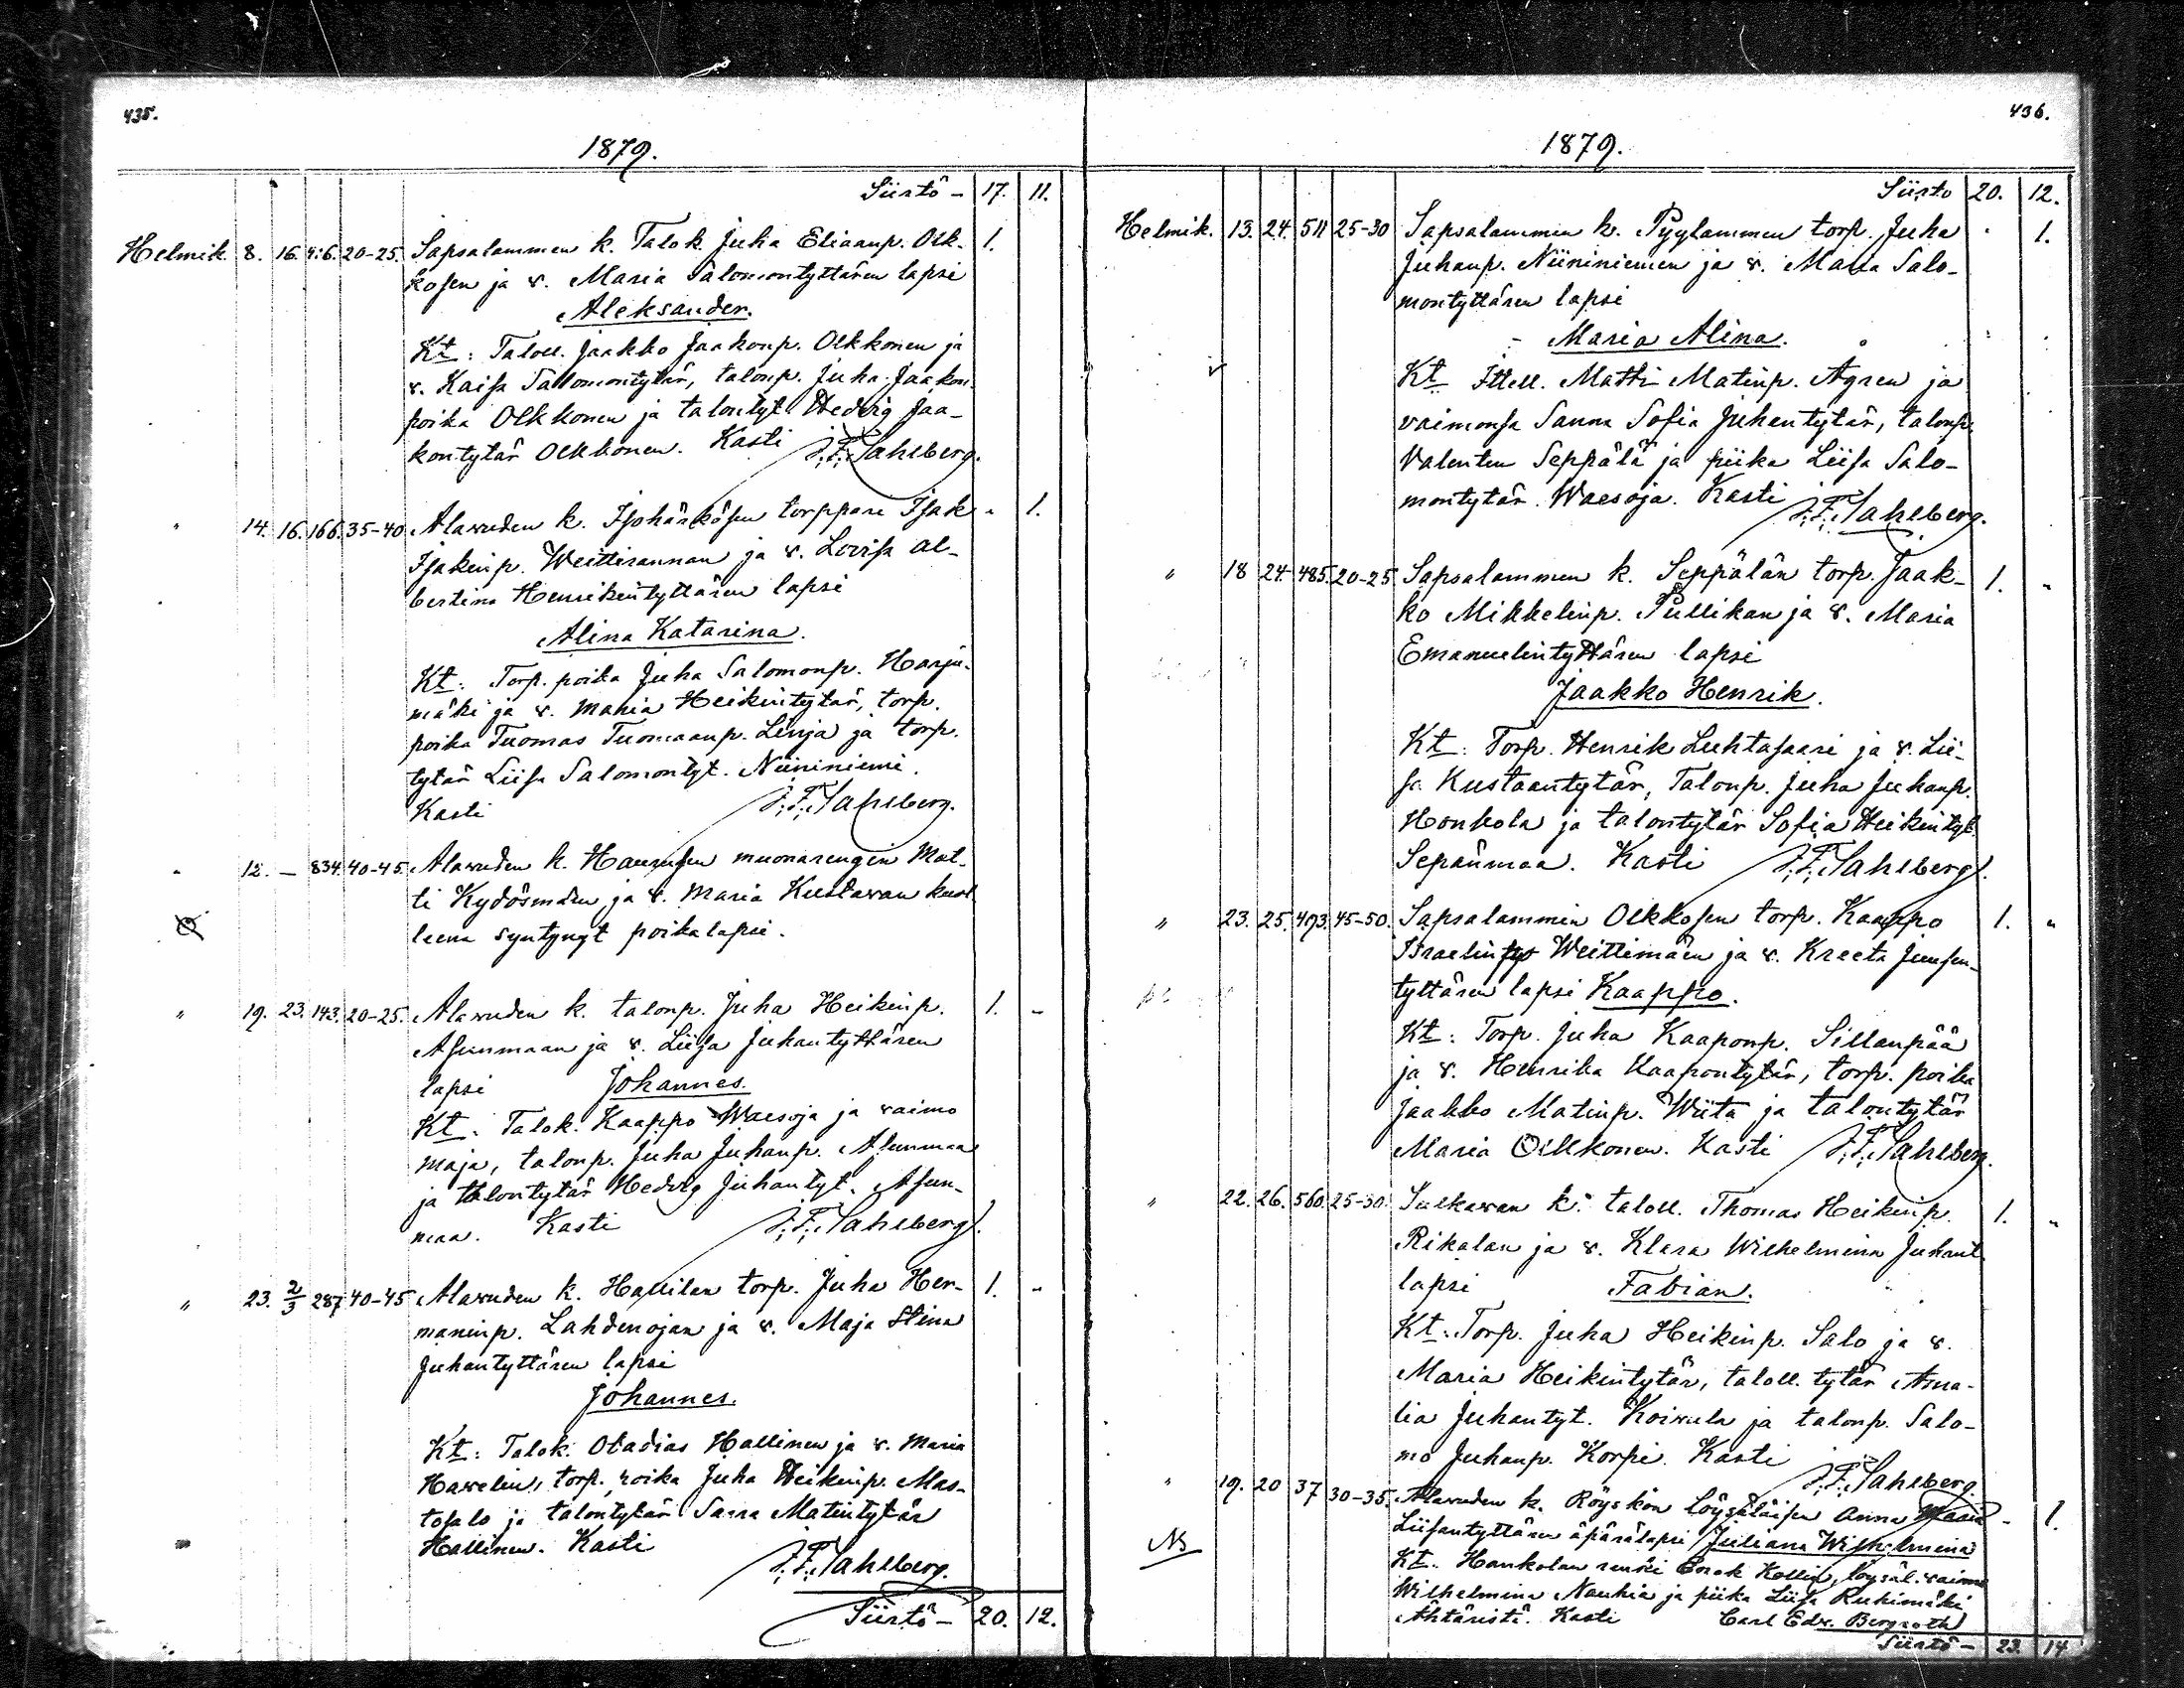 435.
1879.
Siirtö - 17. 11.
Helmik. 8. 16. 4:6. 20-25. Sapsalammen k. Talok. Juha Eliaanp. Olk- 1.
kosen ja v. Maria Salomontyttären lapsi
Aleksander.
Kt: Taloll. Jaakko Jaakonp. Olkkonen ja
v. Kaisa Salomontytär, talonp. Juha Jaakon
poika Olkkonen ja talontyt. Hedvig Jaa-
kontytär Olkkonen. Kasti J. F. Sahlberg.
" 14. 16. 166. 35-40 Alavuden k. Isohärkösen torppari Isak " 1.
Isakinp. Weittirannan ja v. Lovisa Al-
bertina Henrikintyttären lapsi
Alina Katarina.
Kt: Torp. poika Juha Salomonp. Harju-
mäki ja v. Maria Heikintytär, torp.
poika Tuomas Tuomaanp. Linja ja torp.
tytär Liisa Salomontyt. Niininiemi.
Kasti J. F. Sahlberg.
" 12. - 834. 40-45. Alavuden k. muonarengin Mat-
ti Kydösmäen ja v. Maria Kustavan kuol
leena syntynyt poikalapsi.
" 19. 23. 143. 20-25. Alavuden k. talonp. Juha Heikinp. 1. -
Asunmaan ja v. Liisa Juhantyttären
lapsi Johannes.
Kt: Talok. Kaappo Waesoja ja vaimo
Maja, talonp. Juha Juhanp. Asunmaa
ja talontytär Hedvig Juhantyt. Asun-
maa. Kasti J. F. Sahlberg.
" 23. 2/3 287 40-45 Alavuden k. Hallilan torp. Juha Her- 1. "
maninp. Lahdenojan ja v. Maja Stina
Juhantyttären lapsi
Johannes.
Kt: Talok. Obadias Hallinen ja v. Maria
Havelin, torp. poika Juha Heikinp. Mas-
tosalo ja talontytär Sanna Matintytär
Hallinen. Kasti
J. F. Sahlberg.
Siirtö - 20. 12.
436.
1879.
Siirto 20. 12.
Helmik. 13. 24. 511 25-30 Sapsalammin k. Pyylammen torp. Juha " 1.
Juhanp. Niininiemen ja v. Maria Salo-
montyttären lapsi
Maria Alina.
Kt Ittell. Matti Matinp. Agren ja
vaimonsa Sanna Sofia Juhantytär, talonp.
Valentin Seppälä ja piika Liisa Salo-
montytär Waesoja. Kasti J. F. Sahlberg.
" 18 24. 485. 20-25 Sapsalammen k. Seppälän torp. Jaak- 1. "
ko Mikkelinp. Pullikan ja v. Maria
Emanuelintyttären lapsi
Jaakko Henrik.
Kt: Torp. Henrik Luhtasaari ja v. Lii-
sa Kustaantytär, Talonp. Juha Juhanp.
Honkola ja talontytär Sofia Heikintyt.
Sepänmaa. Kasti J. F. Sahlberg.
" 23. 25. 493. 45-50. Sapsalammin Olkkosen torp. Kaappo 1. "
Israelinp Weittimäen ja v. Kreeta Juusen-
tyttären lapsi Kaappo.
Kt: Torp. Juha Kaaponp. Sillanpää
ja v. Henrika Kaapontytär, torp. poika
Jaakko Matinp. Wiita ja talontytär
Maria Olkkonen. Kasti J. F. Sahlberg.
" 22. 26. 560. 25-30. Sulkavan k. taloll. Thomas Heikinp. 1. "
Rikalan ja v. Klara Wilhelmina Juhant.
lapsi Fabian.
Kt: Torp. Juha Heikinp. Salo ja v.
Maria Heikintytär, taloll. tytär Ama-
lia Juhantyt. Koivula ja talonp. Salo-
mo Juhanp. Korpi. Kasti
J. F. Sahlberg.
" 19. 20 37 30-35. Alavuden k. Röyskön löysäläisen Anna Maria - 1.
NB Liisantyttären äpärälapsi Juliana Wilhelmina
Kt. Honkolan renki Enok Kollin, löysäl. vaimo
Wilhelmina Nauhia ja piika Liisa Ruhimäki
Ähtäristä. Kasti Carl Edv. Bergroth
Siirtö - 23. 14